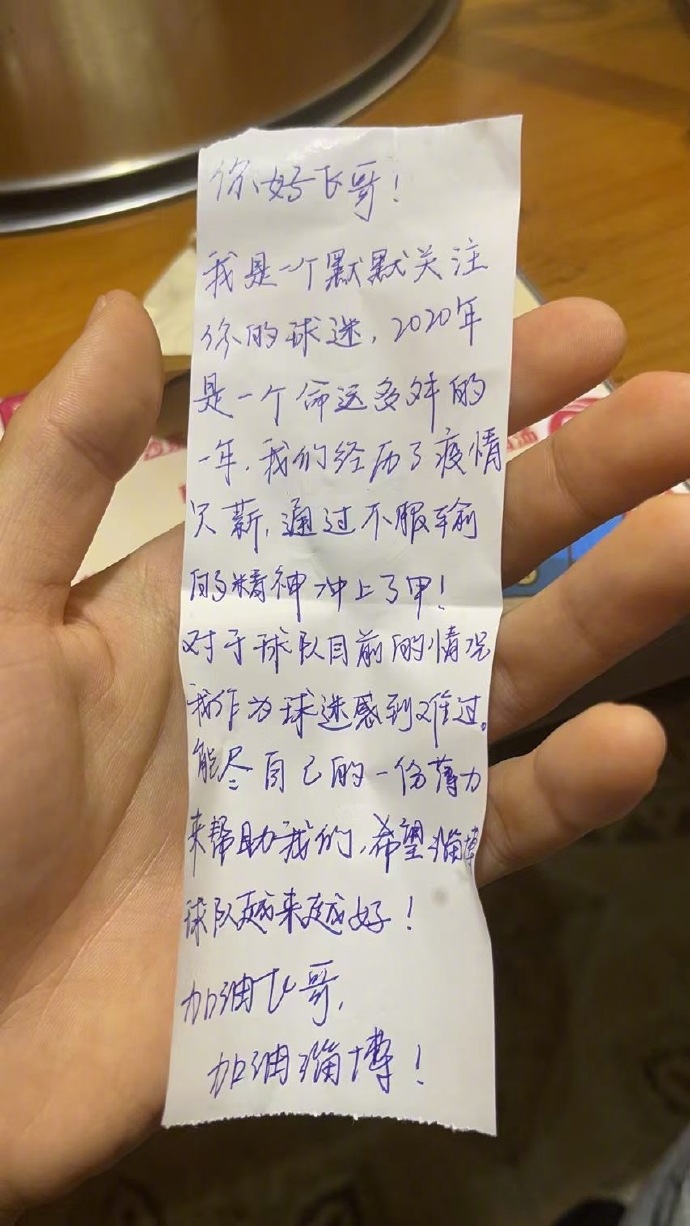 你好飞哥！
我是一个默默关注
你的球迷，2020年
是一个命运多舛的
一年，我们经历了疫情
欠薪，通过不服输
的精神冲上了甲！
对于球队目前的情况
我作为球迷感到难过。
能尽自己的一份薄力
来帮助我们，希望淄博
球队越来越好！
加油飞哥，
加油淄博！